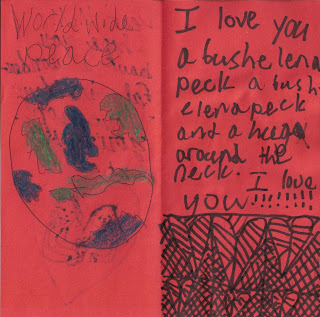 World wide
peace
I love you
a bushelena
peck a bush
elenapeck
and a hug
around the
neck. I love
you!!!!!!!!